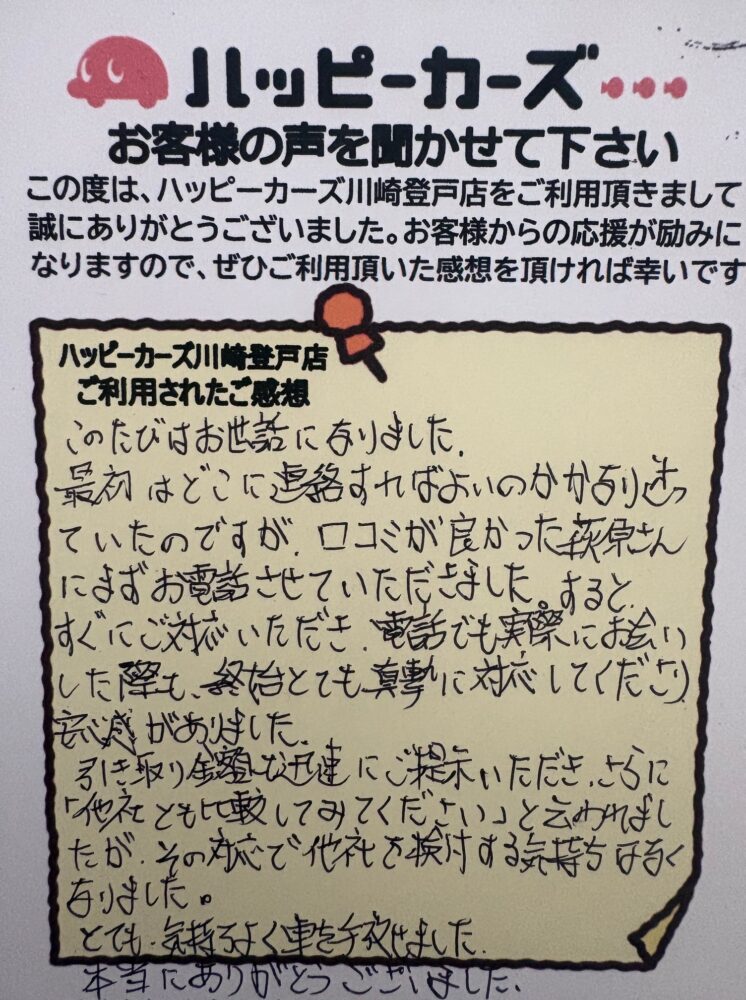 ハッピーカーズ
お客様の声を聞かせて下さい
この度は、ハッピーカーズ川崎登戸店をご利用頂きまして
誠にありがとうございました。お客様からの応援が励みに
なりますので、ぜひご利用頂いた感想を頂ければ幸いです
ハッピーカーズ川崎登戸店
ご利用されたご感想
このたびはお世話になりました.
最初はどこに連絡すればよいのかかなり迷っ
ていたのですが、口コミが良かった萩原さん
にまずお電話させていただきました。すると、
すぐにご対応いただき、電話でも実際にお会い
した際も、終始とても真摯に対応してくださり
安心感がありました.
引き取り金額も迅速にご提示いただき、さらに
「他社とも比較してみてください」と言われまし
たが、その対応で他社を検討する気持ちはなく
なりました。
とても気持ちよく車を手放せました.
本当にありがとうございました.